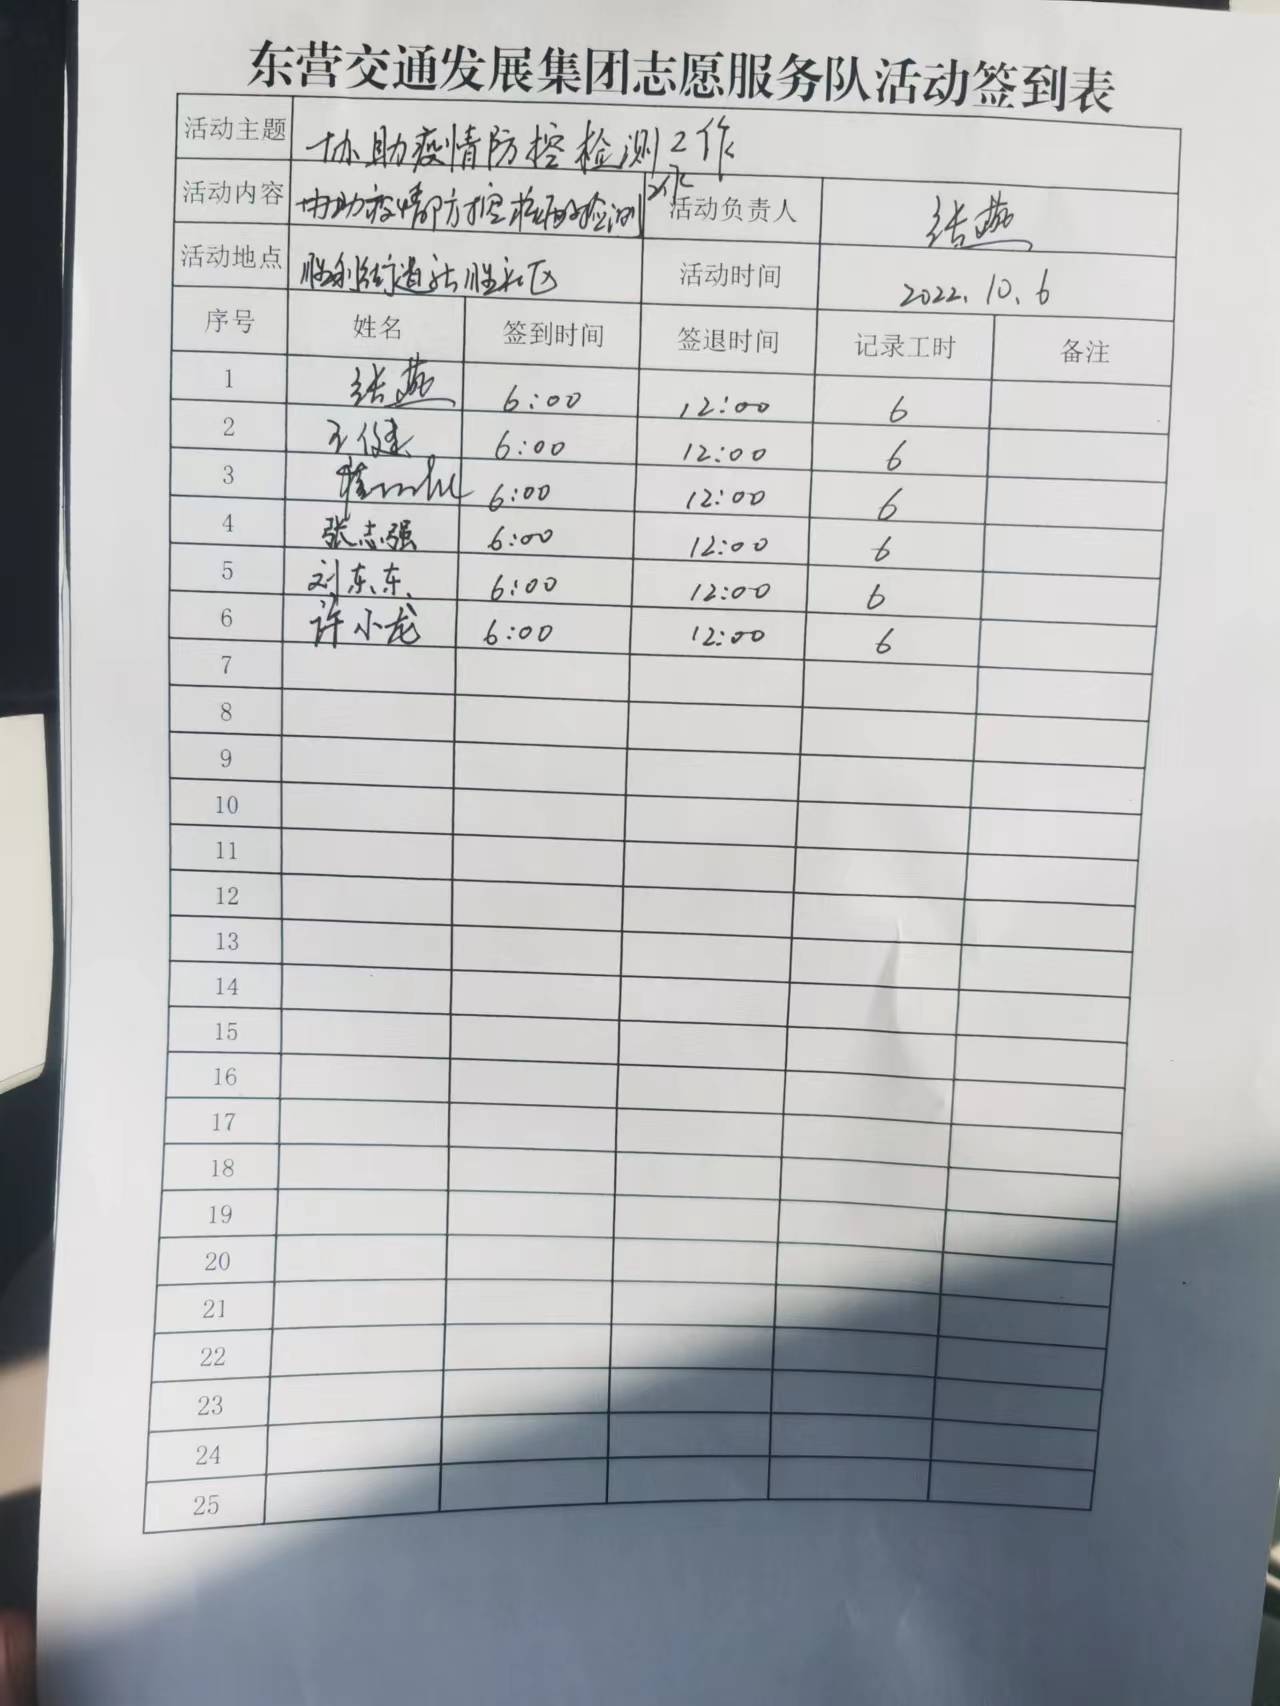 东营交通发展集团志愿服务队活动签到表
活动主题 协助疫情防控检测工作
活动内容 协助疫情防控核酸检测工作 活动负责人 张燕
活动地点 胜利街道 社区 活动时间 2022.10.6
序号 姓名 签到时间 签退时间 记录工时 备注
1 张燕 6:00 12:00 6
2 王健 6:00 12:00 6
3 6:00 12:00 6
4 张志强 6:00 12:00 6
5 刘东东 6:00 12:00 6
6 许小龙 6:00 12:00 6
7
8
9
10
11
12
13
14
15
16
17
18
19
20
21
22
23
24
25